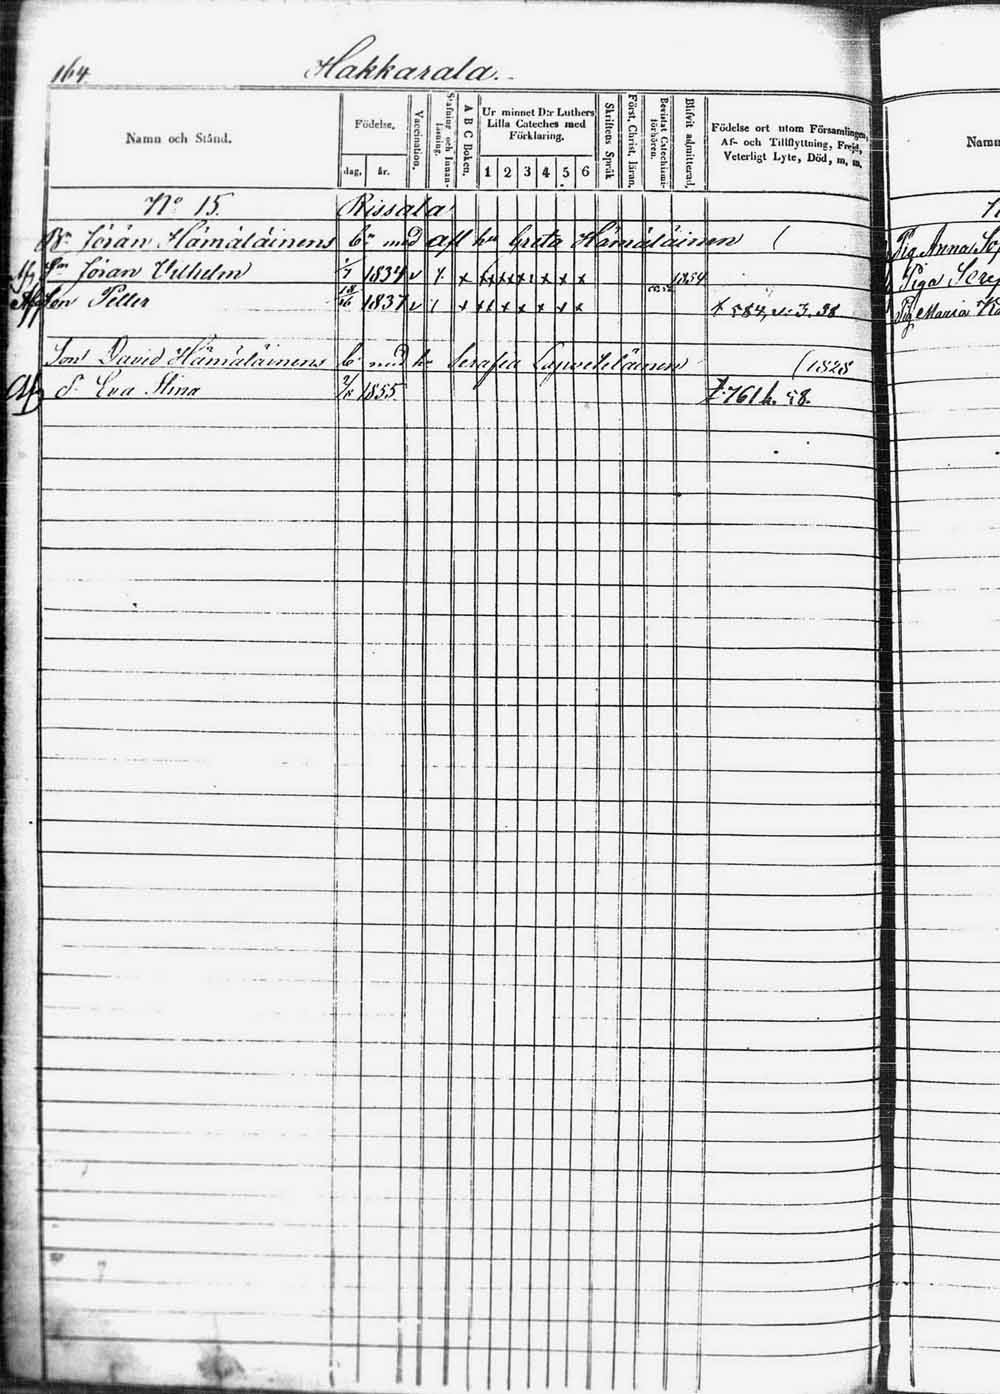 164. Hakkarala.
Namn och Stånd.
Födelse.
dag. år.
Vaccination.
Stafning och Innanläsning.
A B C Boken.
Ur minnet D:r Luthers
Lilla Cateches med
Förklaring.
1 2 3 4 5 6
Skriftens Språk
Först. Christ. läran.
Bevistat Catechismiförhören.
Blifvit admitterad.
Födelse ort utom Församlingen,
Af- och Tillflyttning, Frejd,
Veterligt Lyte, Död, m. m.
Namn
No 15. Rissala
Jöran Hämäläinens b:n med afl hu Greta Hämäläinen (
Jöran Vilhelm 1834 1854
Petter 1837 584, 38
Son David Hämäläinens b: med hu Serafia (1828
Eva Stina 1855. 761 58.
Pig Anna
Piga
Pig Maria